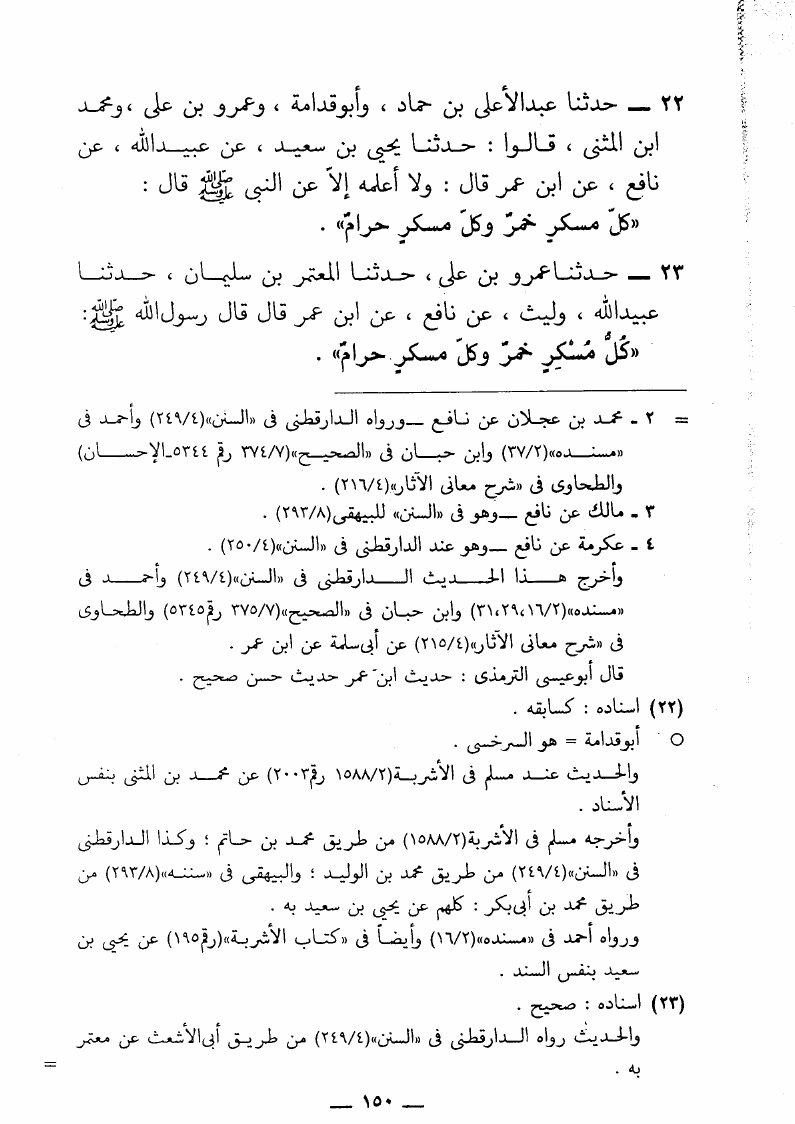 ٢٢ — حدثنا عبدالأعلى بن حماد ، وأبوقدامة ، وعمرو بن على ، ومحمد
ابن المثنى ، قالوا : حدثنا يحيى بن سعيد ، عن عبيدالله ، عن
نافع ، عن ابن عمر قال : ولا أعلمه إلاّ عن النبى ﷺ قال :
«كلّ مسكرٍ خمرٌ وكلّ مسكرٍ حرامٌ» .
٢٣ — حدثنا عمرو بن على ، حدثنا المعتمر بن سليمان ، حدثنا
عبيدالله ، وليث ، عن نافع ، عن ابن عمر قال قال رسول الله ﷺ :
«كُلُّ مُسْكِرٍ خمرٌ وكلّ مسكرٍ حرامٌ» .
= ٢ ـ محمد بن عجلان عن نافع —ورواه الدارقطنى فى «السنن»(٢٤٩/٤) وأحمد فى
«مسنده»(٣٧/٢) وابن حبان فى «الصحيح»(٣٧٤/٧ رقم ٥٣٤٤ـالإحسان)
والطحاوى فى «شرح معانى الآثار»(٢١٦/٤) .
٣ ـ مالك عن نافع —وهو فى «السنن» للبيهقى(٢٩٣/٨) .
٤ ـ عكرمة عن نافع —وهو عند الدارقطنى فى «السنن»(٢٥٠/٤) .
وأخرج هذا الحديث الدارقطنى فى «السنن»(٢٤٩/٤) وأحمد فى
«مسنده»(١٦/٢،٢٩،٣١) وابن حبان فى «الصحيح»(٣٧٥/٧ رقم٥٣٤٥) والطحاوى
فى «شرح معانى الآثار»(٢١٥/٤) عن أبى سلمة عن ابن عمر .
قال أبوعيسى الترمذى : حديث ابن عمر حديث حسن صحيح .
(٢٢) اسناده : كسابقه .
○ أبوقدامة = هو السرخسى .
والحديث عند مسلم فى الأشربة(١٥٨٨/٢ رقم٢٠٠٣) عن محمد بن المثنى بنفس
الأسناد .
وأخرجه مسلم فى الأشربة(١٥٨٨/٢) من طريق محمد بن حاتم ؛ وكذا الدارقطنى
فى «السنن»(٢٤٩/٤) من طريق محمد بن الوليد ؛ والبيهقى فى «سننه»(٢٩٣/٨) من
طريق محمد بن أبى بكر : كلهم عن يحيى بن سعيد به .
ورواه أحمد فى «مسنده»(١٦/٢) وأيضاً فى «كتاب الأشربة»(رقم١٩٥) عن يحيى بن
سعيد بنفس السند .
(٢٣) اسناده : صحيح .
والحديث رواه الدارقطنى فى «السنن»(٢٤٩/٤) من طريق أبى الأشعث عن معتمر
به . =
— ١٥٠ —